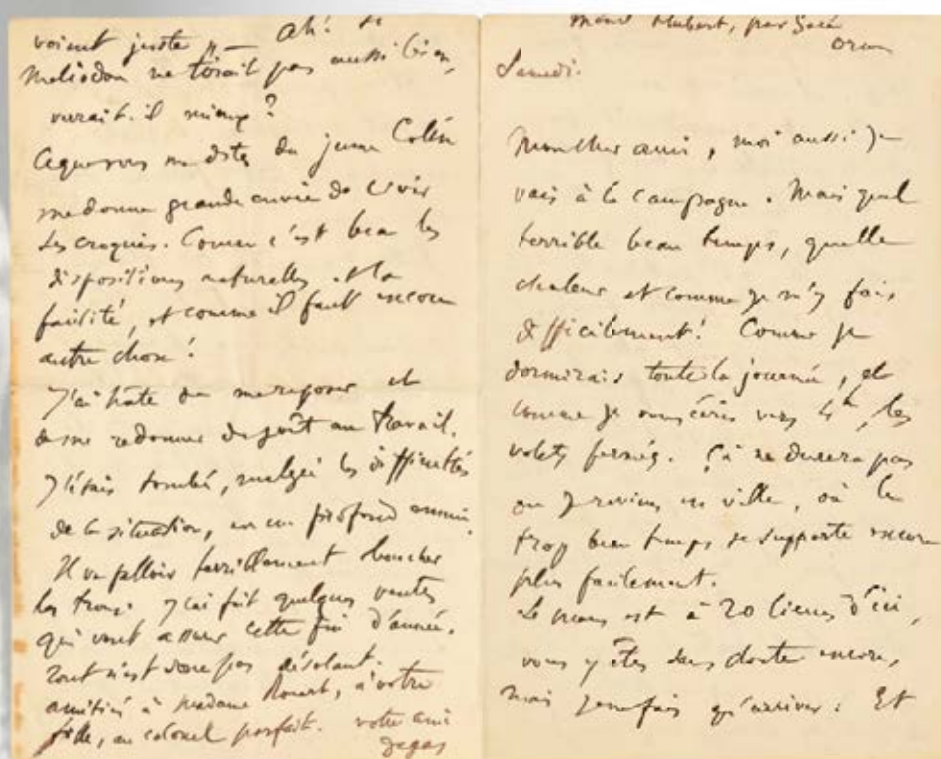 voient juste — Ah! si
Meliodon ne tirait pas aussi bien,
verrait-il mieux?
Ce que vous me dites du jeune Colin
me donne grande envie de voir
ses croquis. Comme c'est beau les
dispositions naturelles et la
facilité, et comme il faut encore
autre chose!
J'ai hâte de me reposer et
de me redonner du goût au travail.
J'étais tombé, malgré les difficultés
de la situation, en un profond ennui.
Il va falloir terriblement boucher
les trous. J'ai fait quelques ventes
qui vont assurer cette fin d'année.
Tout n'est donc pas désolant.
amitiés à madame Rouart, à votre
fille, au colonel parfait. votre ami
Degas
Menil Hubert, par Gacé
Orne
Samedi.
Mon cher ami, moi aussi je
vais à la campagne. Mais quel
terrible beau temps, quelle
chaleur et comme je m'y fais
difficilement! Comme je
dormirais toute la journée, et
comme je vous écris vers 4h, les
volets fermés. Çà ne durera pas
ou je reviens en ville, où le
trop beau temps se supporte encore
plus facilement.
Le mans est à 20 lieues d'ici,
vous y êtes sans doute encore,
mais je ne fais qu'arriver. Et